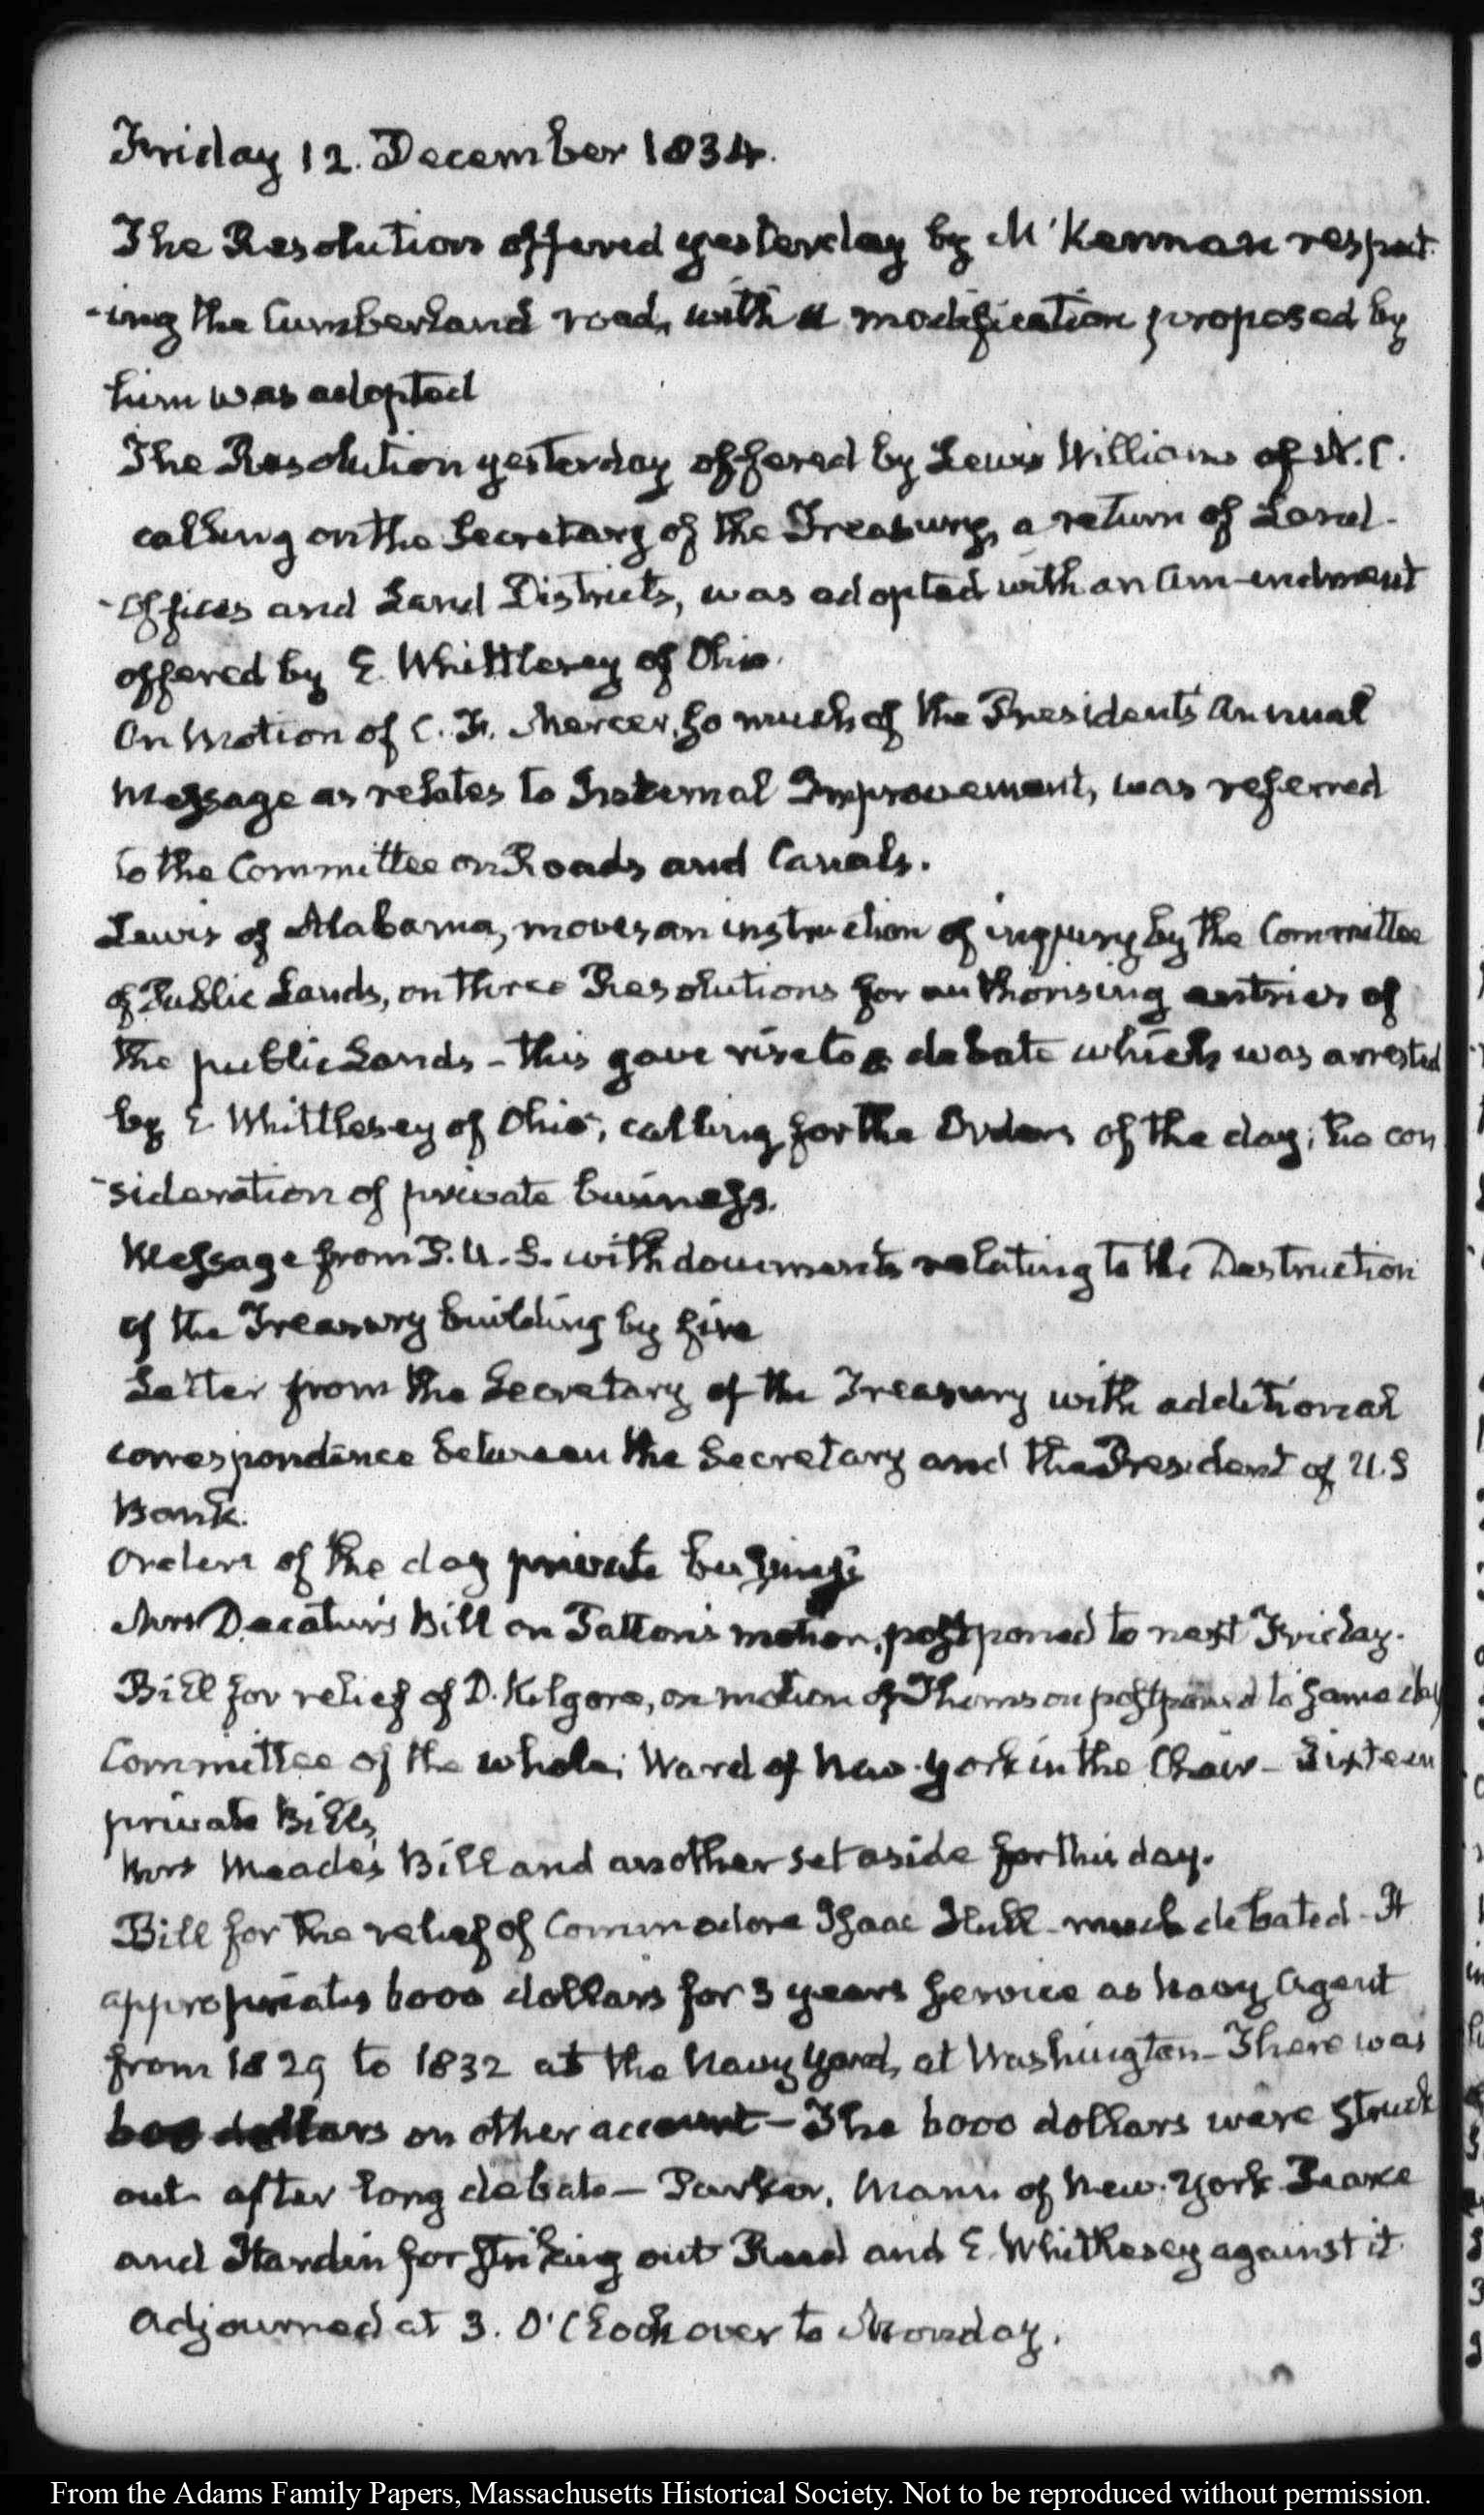 Friday 12. December 1834.
The Resolution offered yesterday by M'Kennan respect-
-ing the Cumberland road, with a modification proposed by
him was adopted
The Resolution yesterday offered by Lewis Williams of N.C.
calling on the Secretary of the Treasury, a return of Land-
-Offices and Land Districts, was adopted with an Amendment
offered by E. Whittlesey of Ohio.
On Motion of C. F. Mercer, so much of the Presidents Annual
Message as relates to Internal Improvement, was referred
to the Committee on Roads and Canals.
Lewis of Alabama, moves an instruction of inquiry by the Committee
of Public Lands, on three Resolutions for authorising entries of
the public Lands – this gave rise to a debate which was arrested
by E Whittlesey of Ohio, calling for the Orders of the day; the con
-sideration of private business.
Message from P.U.S. with documents relating to the Destruction
of the Treasury building by fire
Letter from the Secretary of the Treasury with additional
correspondence between the Secretary and the President of U.S
Bank.
Orders of the day private business
Mrs Decatur's Bill on Patton's motion, postponed to next Friday.
Bill for relief of D. Kilgore, on motion of Thomson postponed to same day
Committee of the whole; Ward of New-York in the Chair – Sixteen
private Bills,
Mrs Meade's Bill and another set aside for this day.
Bill for the relief of Commodore Isaac Hull – much debated – It
appropriates 6000 dollars for 3 years service as Navy Agent
from 1829 to 1832 at the Navy Yard, at Washington – There was
600 dollars on other account – The 6000 dollars were struck
out after long debate – Parker, Mann of New-York Pearce
and Hardin for striking out Reed and E. Whittlesey against it
Adjourned at 3. O'Clock over to Monday.
From the Adams Family Papers, Massachusetts Historical Society. Not to be reproduced without permission.